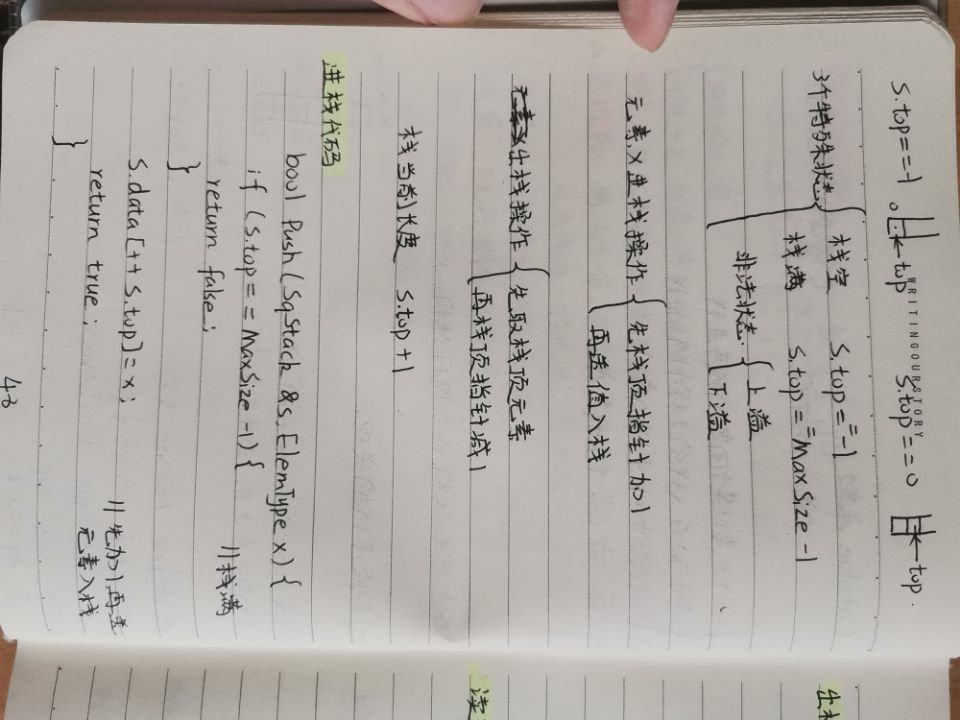 WRITINGOURSTORY
S.top==-1 0 ←top S.top==0 ←top.
3个特殊状态 栈空 S.top==-1
栈满 S.top==MaxSize-1
非法状态. 上溢
下溢
元素x进栈操作 先栈顶指针加1
再送值入栈
元素x出栈操作 先取栈顶元素
再栈顶指针减1
栈当前长度 S.top+1
进栈代码
bool Push(SqStack &S, ElemType x){
if(S.top==MaxSize-1){
return false; //栈满
}
S.data[++S.top]=x; //先加1,再
return true; 元素入栈
}
读
出